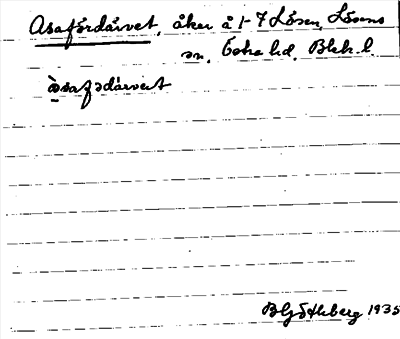 Asafördärvet, åker å 1-7 Lösen, Lösens
sn, Östra hd, Blek. l.
àsafədärvet
BGötlberg 1935